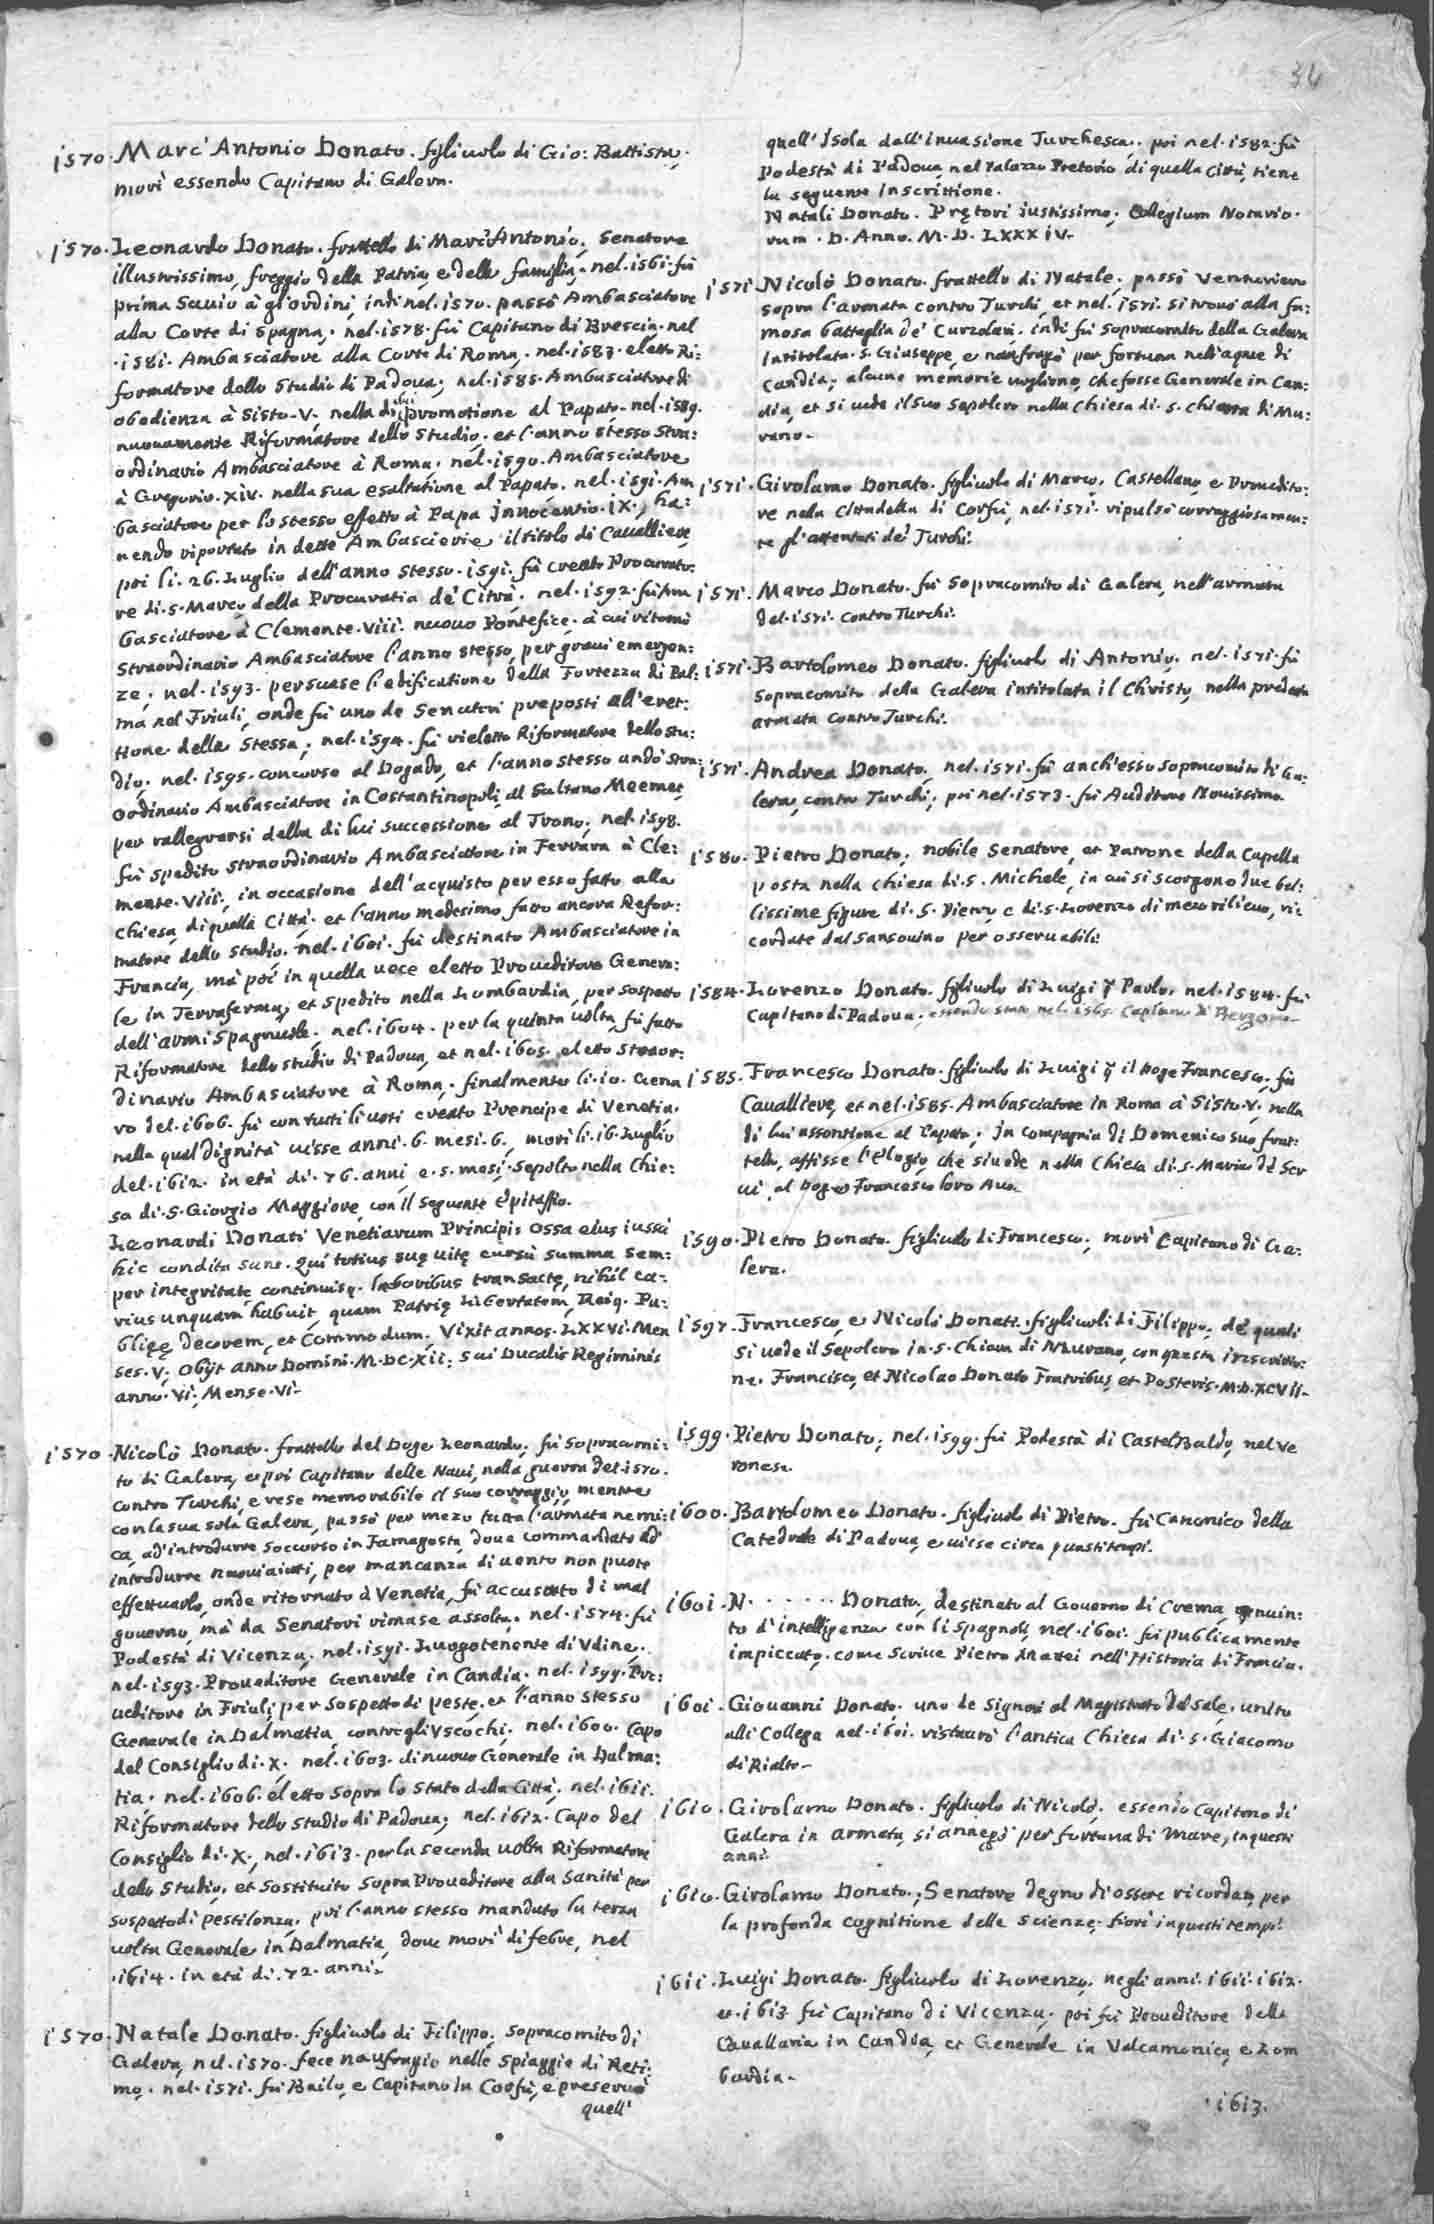 34
1570. Marc' Antonio Donato. figliuolo di Gio: Battista,
morì essendo Capitano di Galera.
1570. Leonardo Donato. frattello di Marc'Antonio, Senatore
illustrissimo, freggio della Patria, e della famiglia, nel. 1561. fù
prima Sauio à gl'ordini, indi nel. 1570. passò Ambasciatore
alla Corte di Spagna, nel. 1578. fù Capitano di Brescia, nel
.1581. Ambasciatore alla Corte di Roma, nel. 1583. eletto Ri:
formatore dello Studio di Padoua, nel. 1585. Ambasciatore di
obedienza à Sisto. V. nella di lui promotione al Papato. nel. 1589.
nuouamente Riformatore dello Studio, et l'anno stesso Stra:
ordinario Ambasciatore à Roma. nel. 1590. Ambasciatore
à Gregorio. XIV. nella sua esaltatione al Papato. nel. 1591. Am
basciatore per lo stesso effetto à Papa Innocentio. IX., ha:
uendo riportato in dette Ambascierie il titolo di Caualliere,
poi li. 26. Luglio dell'anno stesso. 1591. fù creato Procurato:
re di. S. Marco, della Procuratia de' Citrà. nel. 1592. fù Am
basciatore à Clemente. VIII. nuouo Pontefice. à cui ritornò
Straordinario Ambasciatore l'anno stesso, per graui emergen:
ze, nel. 1593. persuase l'edificatione della Fortezza di Pal:
ma nel Friuli, onde fù uno de Senatori preposti all'eret:
tione della stessa, nel. 1594. fù rieletto Riformatore dello Stu:
dio. nel. 1595. concorse al Dogado, et l'anno stesso andò Stra:
ordinario Ambasciatore in Costantinopoli, al Sultano Meemet,
per rallegrarsi della di lui successione al Trono, nel. 1598.
fù spedito straordinario Ambasciatore in Ferrara à Cle:
mente. VIII., in occasione dell'acquisto per esso fatto alla
chiesa, di quella Città. et l'anno medesimo, fatto ancora Refor:
matore dello Studio. nel. 1601. fù destinato Ambasciatore in
Francia, mà poi in quella uece eletto Proueditore Genera:
le in Terraferma, et spedito nella Lombardia, per sospetto
dell'armi Spagnuole, nel. 1604. per la quinta uolta, fù fatto
Riformatore dello studio di Padoua, et nel. 1605. eletto Straor:
dinario Ambasciatore à Roma, finalmente li. 10. Genа
ro del. 1606. fù con tutti li uoti creato Prencipe di Venetia.
nella qual dignità uisse anni. 6. mesi. 6., morì li. 16. Luglio
del. 1612. in età di. 76. anni, e. 5. mesi, sepolto nella Chie:
sa di. S. Giorgio Maggiore, con il seguente epitaffio.
Leonardi Donati Venetiarum Principis ossa eius iussù
hic condita sunt. Qui totius suę uitę cursù summa sem:
per integritate continuisq. laboribus transactę, nihil ca:
rius unquam habuit, quam Patrię Libertatem, Reiq. Pu:
blicę decorem, et commodum. Vixit annos. LXXVI. Men
ses. V. Obijt anno Domini. M. DC. XII. sui Ducalis Regiminis
anno. VI. Mense. VI.
1570. Nicolò Donato. frattello del Doge Leonardo, fù sopracomi:
to di Galera, e poi Capitano delle Naui, nella guerra del. 1570.
contro Turchi, e rese memorabile il suo corraggio, mentre
con la sua sola Galera, passò per mezo tutta l'armata nemi:
ca, ad'introdurre soccorso in Famagosta, doue commandato ad
introdurre nuoui aiuti, per mancanza di uento non puote
effettuarlo, onde ritornato à Venetia, fù accusato di mal
gouerno, mà da Senatori rimase assolto. nel. 1574. fù
Podestà di Vicenza. nel. 1591. Luogotenente di Vdine.
nel. 1593. Proueditore Generale in Candia. nel. 1599. Pro:
ueditore in Friuli, per sospetto di peste. et l'anno stesso
Generale in Dalmatia, contro gli Vscochi. nel. 1600. Capo
del Consiglio di. X. nel. 1603. di nuouo Generale in Dalma:
tia. nel. 1606. eletto sopra lo stato della Città. nel. 1611.
Riformatore dello Studio di Padoua, nel. 1612. Capo del
Consiglio di. X., nel. 1613. per la seconda uolta Riformatore
dello Studio, et sostituito sopra Proueditore alla Sanità per
sospetto di pestilenza, poi l'anno stesso mandato la terza
uolta Generale in Dalmatia, doue morì di febre, nel
.1614. in età di. 72. anni.
1570. Natale Donato. figliuolo di Filippo, sopracomito di
Galera, nel. 1570. fece naufragio nelle spiaggie di Reti:
mo. nel. 1571. fù Bailo, e Capitano in Corfù, e preseruò
quell'
quell'Isola dall'inuasione Turchesca, poi nel. 1582. fù
Podestà di Padoua, nel Palazzo Pretorio di quella Città, tiene
la seguente Inscrittione.
Natali Donato. Prętori iustissimo, Collegium Notario.
rum. D. Anno. M. D. LXXXIV.
1571. Nicolò Donato. frattello di Natale, passò Venturiero
sopra l'armata contro Turchi, et nel. 1571. si trouò alla fa:
mosa battaglia de' Curzolari, indi fù sopracomito della Galera
Intitolata. S. Giuseppe, e naufragò per fortuna nell'aque di
Candia, alcune memorie uogliono, che fosse Generale in Can:
dia, et si uede il suo sepolcro nella Chiesa di. S. Chiara di Mu:
rano.
1571. Girolamo Donato. figliuolo di Marco, Castellano, e Proedito:
re nella Cittadella di Corfù, nel. 1571. ripulsò corraggiosamen:
te gl'attentati de' Turchi.
1571. Marco Donato. fù sopracomito di Galera, nell'armata
del. 1571. contro Turchi.
1571. Bartolomeo Donato. figliuolo di Antonio, nel. 1571. fù
sopracomito della Galera intitolata il Christo, nella predetta
armata contro Turchi.
1571. Andrea Donato, nel. 1571. fù anch'esso sopracomito di Ga:
lera, contro Turchi, poi nel. 1573. fù Auditore Nouissimo.
1580. Pietro Donato, nobile Senatore, et Patrone della Capella
posta nella chiesa di. S. Michele, in cui si scorgono due bel:
lissime figure di. S. Pietro, e di. S. Lorenzo di mezo rilieuo, ri:
cordate dal Sansouino per osseruabili.
1584. Lorenzo Donato. figliuolo di Luigi q. Paolo, nel. 1584. fù
Capitano di Padoua, essendo stato nel. 1565. Capitano di Bergomo.
1585. Francesco Donato. figliuolo di Luigi q. il Doge Francesco, fù
Cauallieve, et nel. 1585. Ambasciatore in Roma à Sisto. V. nella
di lui assontione al Papato, in compagnia di Domenico suo frat:
tello, affisse l'elogio, che si uede nella Chiesa di. S. Maria de' Ser
ui, al Doge Francesco loro Auo.
1590. Pietro Donato. figliuolo di Francesco, morì Capitano di Ga:
lera.
1597. Francesco, e Nicolò Donati. figliuoli di Filippo, de' quali
si uede il sepolcro in. S. Chiara di Murano, con questa inscrittio:
ne. Francisco, et Nicolao Donato Fratribus, et Posteris. M. D. XCVII.
1599. Pietro Donato, nel. 1599. fù Podestà di CastelBaldo, nel Ve
ronese.
1600. Bartolomeo Donato. figliuolo di Pietro. fù Canonico della
Catedrale di Padoua, e uisse circa questi tempi.
1601. N. . . . . . Donato, destinato al Gouerno di Crema, conuin:
to d'intelligenza con li Spagnoli, nel. 1601. fù publicamente
impiccato, come scriue Pietro Mattei nell'Historia di Francia.
1601. Giouanni Donato, uno de Signori al Magistrato del Sale, unito
alli Collega nel. 1601. ristaurò l'antica Chiesa di. S. Giacomo
di Rialto.
1610. Girolamo Donato. figliuolo di Nicolò, essendo Capitano di
Galera in armata, si annegò per fortuna di mare, in questi
anni.
1610. Girolamo Donato, Senatore degno di essere ricordato, per
la profonda cognitione delle scienze, fiorì in questi tempi.
1611. Luigi Donato. figliuolo di Lorenzo, negli anni. 1611. 1612.
et. 1613 fù Capitano di Vicenza, poi fù Proueditore della
Cauallaria in Candia, et Generale in Valcamonica, e Lom
bardia.
.1613.